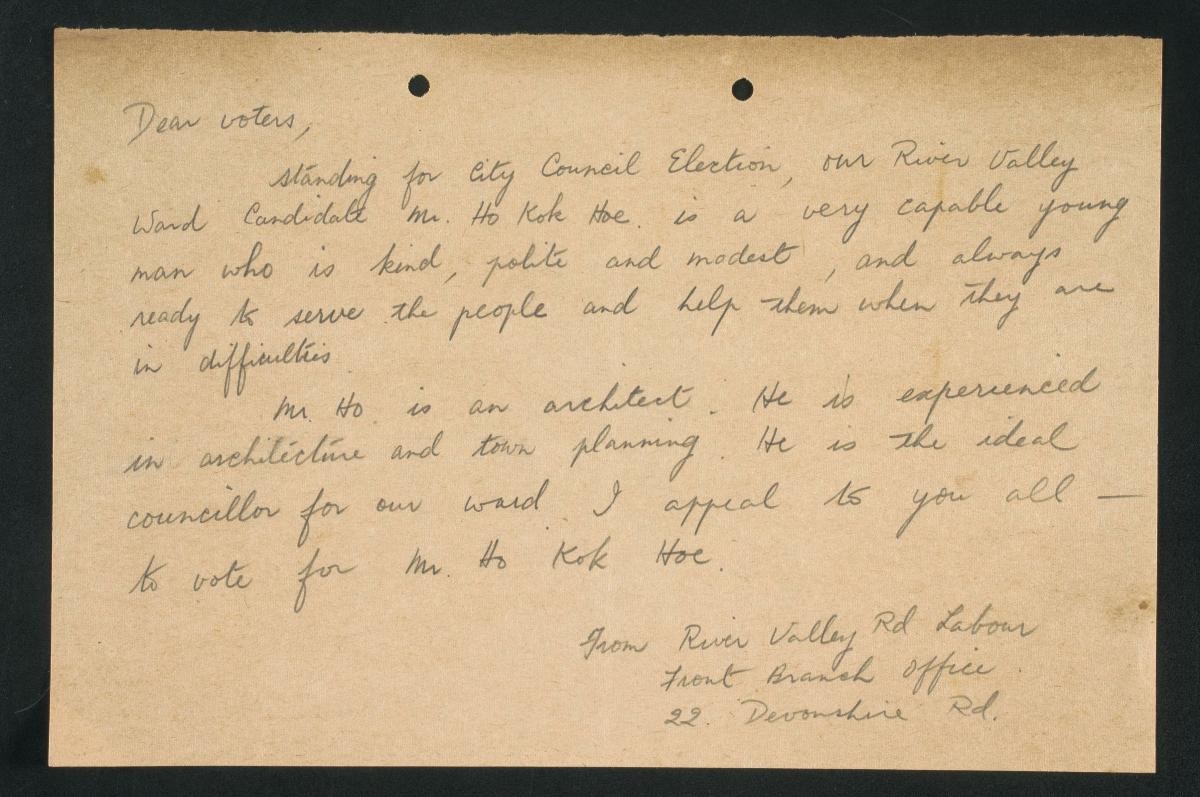 Dear voters,
standing for City Council Election, our River Valley
Ward Candidate Mr. Ho Kok Hoe. is a very capable young
man who is kind, polite and modest, and always
ready to serve the people and help them when they are
in difficulties
Mr. Ho is an architect. He is experienced
in architecture and town planning. He is the ideal
councillor for our ward. I appeal to you all —
to vote for Mr. Ho Kok Hoe.
From River Valley Rd Labour
Front Branch Office.
22. Devonshire Rd.